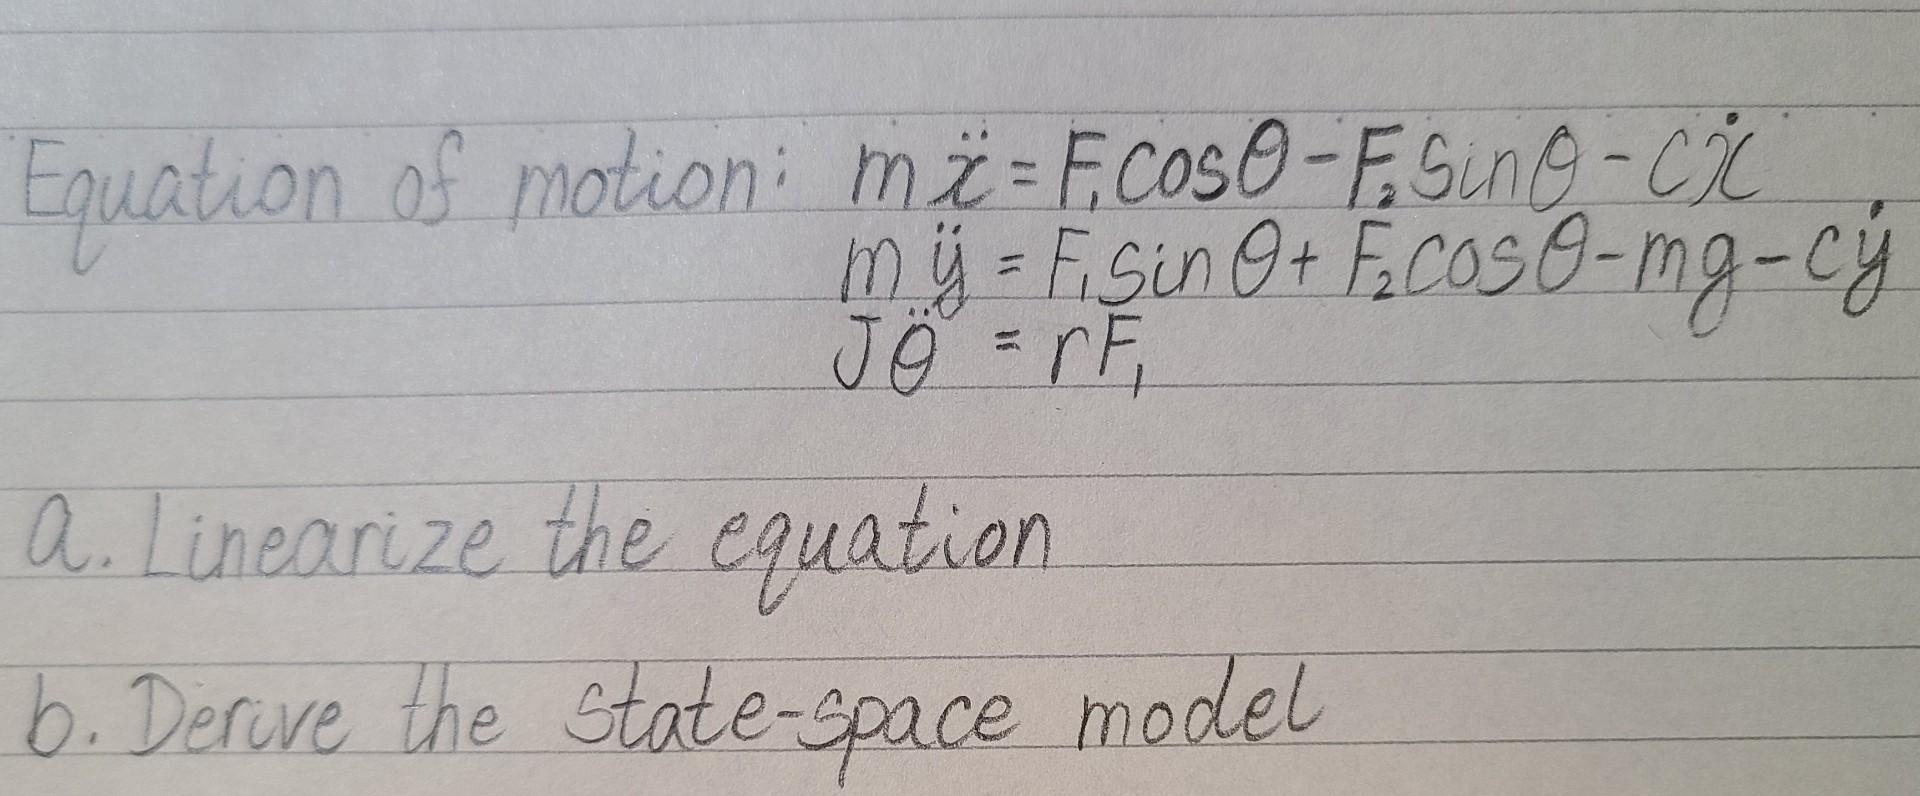 Equation of motion: mẍ = F₁cosθ - F₂sinθ - cẋ
mÿ = F₁sinθ + F₂cosθ - mg - cẏ
Jθ̈ = rF₁
a. Linearize the equation
b. Derive the state-space model